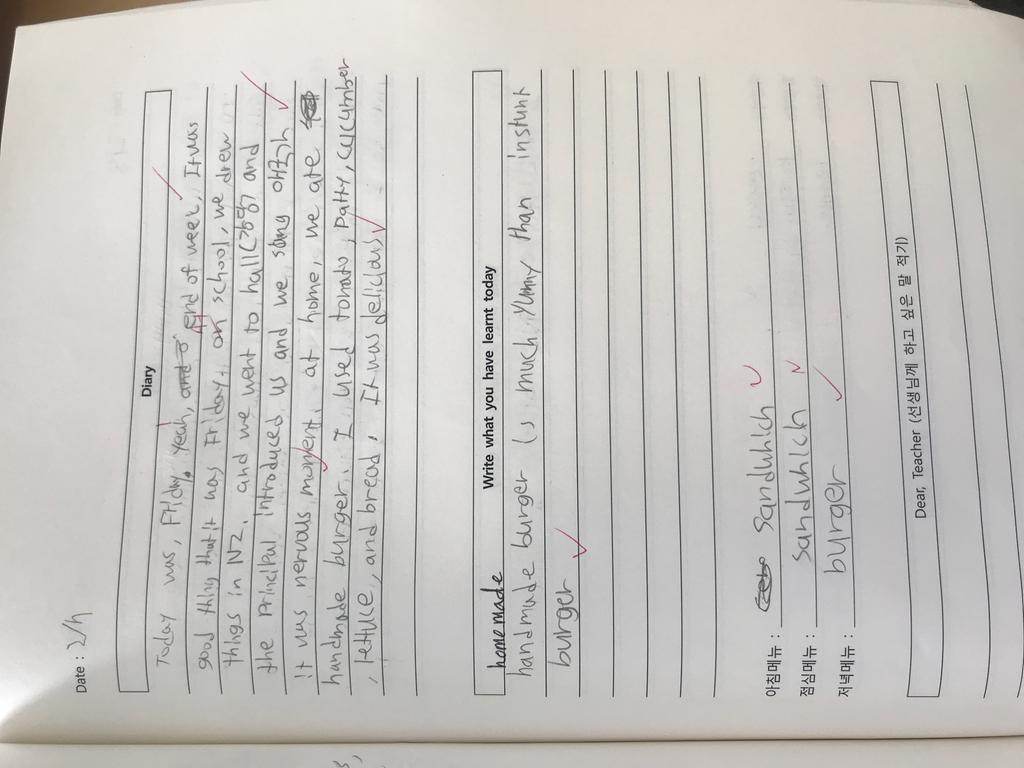 Date : 2/17
Diary
Today was, Friday, yeah, and o End of week, It was
At
good thing that it was Friday. on school, we drew
things in NZ. and we went to hall(강당) and
the Principal introduced us and we sang 애국가
it was nervous moment, at home, we ate
handmade burger. I used tomato, patty, cucumber
, lettuce, and bread. It was delicious
home made
Write what you have learnt today
handmade burger is much yummy than instunt
burger
아침메뉴 : Sandwhich
점심메뉴 : sandwhich
저녁메뉴 : burger
Dear, Teacher (선생님께 하고 싶은 말 적기)